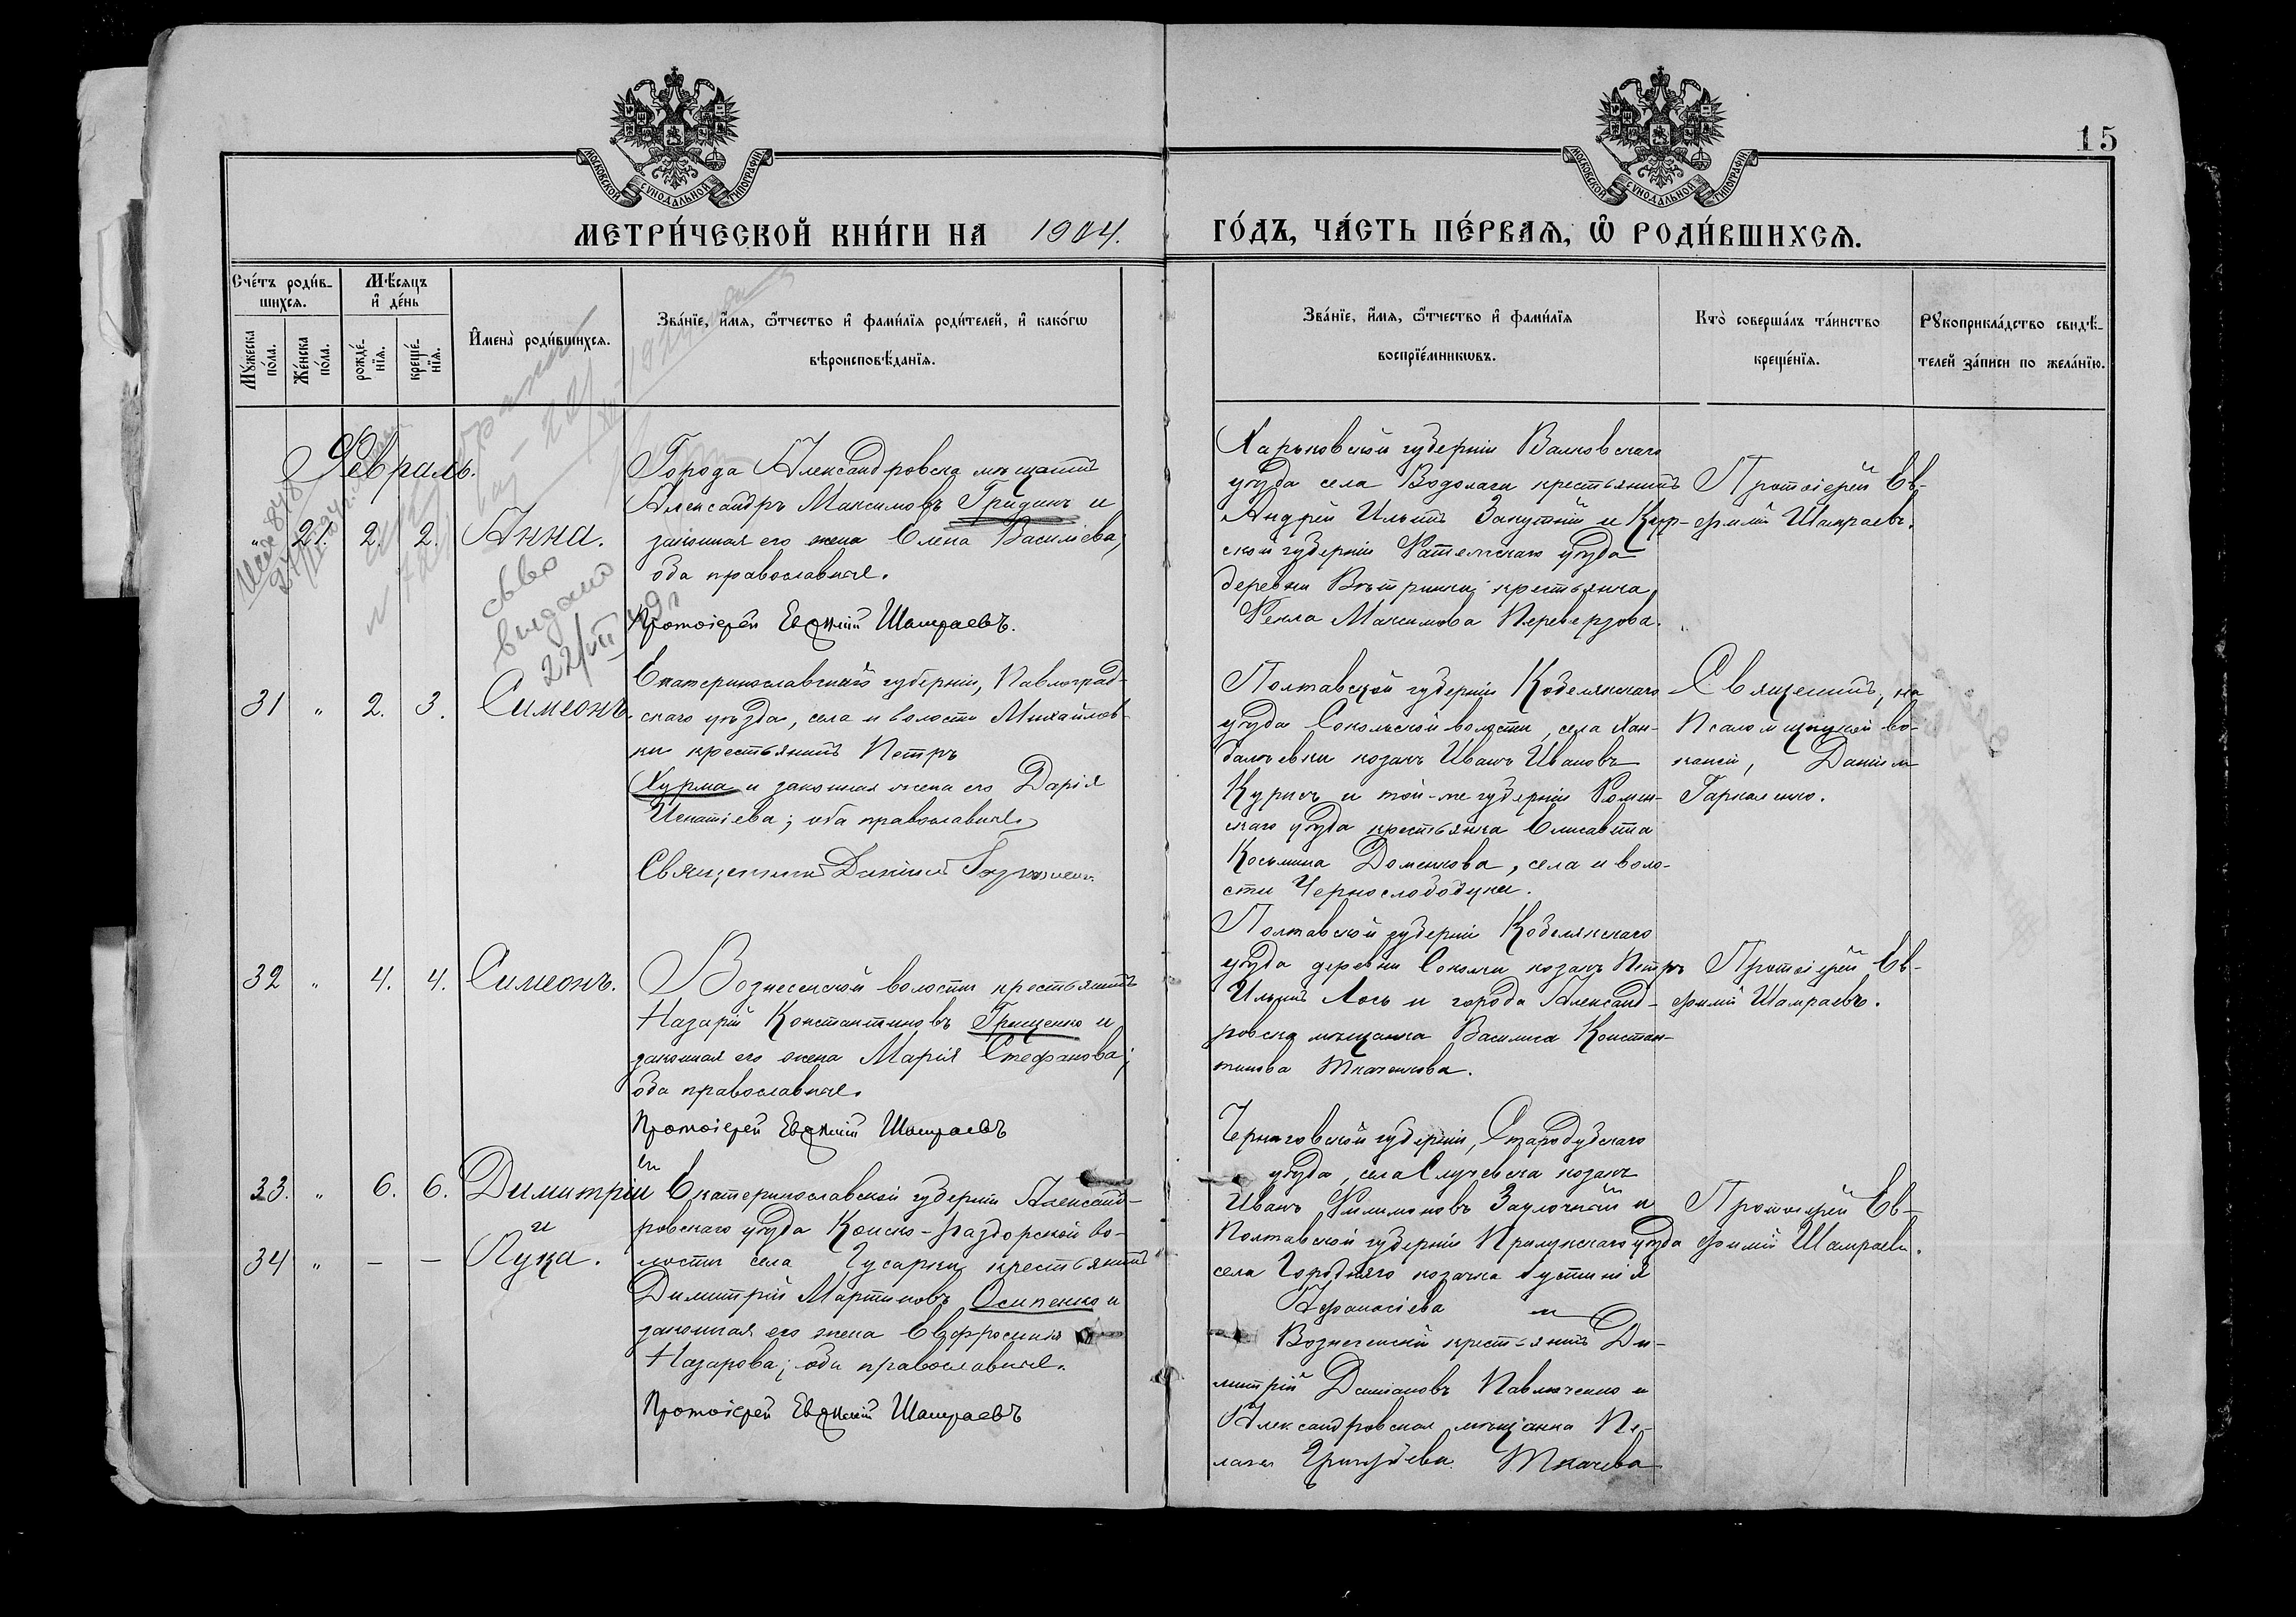 15
МОСКОВСКОЙ СУНОДАЛЬНОЙ ТИПОГРАФІИ
МОСКОВСКОЙ СУНОДАЛЬНОЙ ТИПОГРАФІИ
МЕТРИ́ЧЕСКОЙ КНИ́ГИ НА 1904.
ГО́ДЪ, ЧА́СТЬ ПЕ́РВАЯ, Ѽ РОДИ́ВШИХСЯ.
Сче́тъ роди́в-
шихся.
Мꙋ́жеска
по́ла.
Же́нска
по́ла.
Мѣ́сяцъ
и҆ де́нь
рожде́-
нїя.
креще́-
нїя.
И҆мена̀ роди́вшихся.
Зва́нїе, и҆́мя, ѻ҆́тчество и҆ фами́лїя роди́телей, и҆ како́гѡ
вѣроисповѣ́данїя.
Зва́нїе, и҆́мя, ѻ҆́тчество и҆ фами́лїя
воспрїе́мникѡвъ.
Кто̀ соверша́лъ та́инство
креще́нїя.
Рꙋкоприкла́дство свидѣ́-
телей за́писи по жела́нїю.
Февраль.
" 21. 2. 2. Анна.
свво
выдано
22/VII 49 г
Города Александровска мѣщанинъ
Александръ Максимовъ Гридинъ и
законная его жена Елена Василіева,
оба православные.
Протоіерей Евфимій Шамраевъ.
Харьковской губерніи Валковскаго
уѣзда села Водолаги крестьянинъ
Андрей Ильинъ Закутній и Кур-
ской губерніи уѣзда
деревни крестьянка
Ѳекла Максимова Переверзова.
Протоіерей Ев-
фимій Шамраевъ.
31 " 2. 3. Симеонъ.
Екатеринославской губерніи, Павлоград-
скаго уѣзда, села и волости Михайлов-
ки крестьянинъ Петръ
Хурма и законная жена его Дарія
Игнатіева; оба православные
Священникъ Даніилъ
Полтавской губерніи Кобелякскаго
уѣзда Сокольской волости, села Хан-
далѣевки козакъ Иванъ Ивановъ
Куричъ и той-же губерніи Ромен-
скаго уѣзда крестьянка Елисавета
Косьмина Доменкова, села и воло-
сти Чернослободцка.
Священникъ, на
Псаломщицкой ва-
кансіи, Даніилъ
Гаркаленко.
32 " 4. 4. Симеонъ.
Вознесенской волости крестьянинъ
Назарій Константиновъ Грищенко и
законная его жена Марія Стефанова;
оба православные.
Протоіерей Евфимій Шамраевъ
Полтавской губерніи Кобелякскаго
уѣзда деревни Соколки козакъ Петръ
Ильинъ Лось и города Александ-
ровска мѣщанка Василиса Констан-
тинова Ткаченкова.
Протоіерей Ев-
фимій Шамраевъ.
33. " 6. 6. Димитрій
и
34 " — — Лука.
Екатеринославской губерніи Александ-
ровскаго уѣзда Конско-Раздорской во-
лости села Гусарки крестьянинъ
Димитрій Мартиновъ Осипенко и
законная его жена Евфросинія
Назарова; оба православные.
Протоіерей Евфимій Шамраевъ
Черниговской губерніи, Стародубскаго
уѣзда, села Случевска козакъ
Иванъ Филимоновъ и
Полтавской губерніи Прилукскаго уѣзда
села Городняго козачка Іустинія
Афанасіева и
Вознесенскій крестьянинъ Ди-
митрій Даміановъ Павлюченко и
Александровская мѣщанка Пе-
лагея Григоріева Ткачева
Протоіерей Ев-
фимій Шамраевъ.